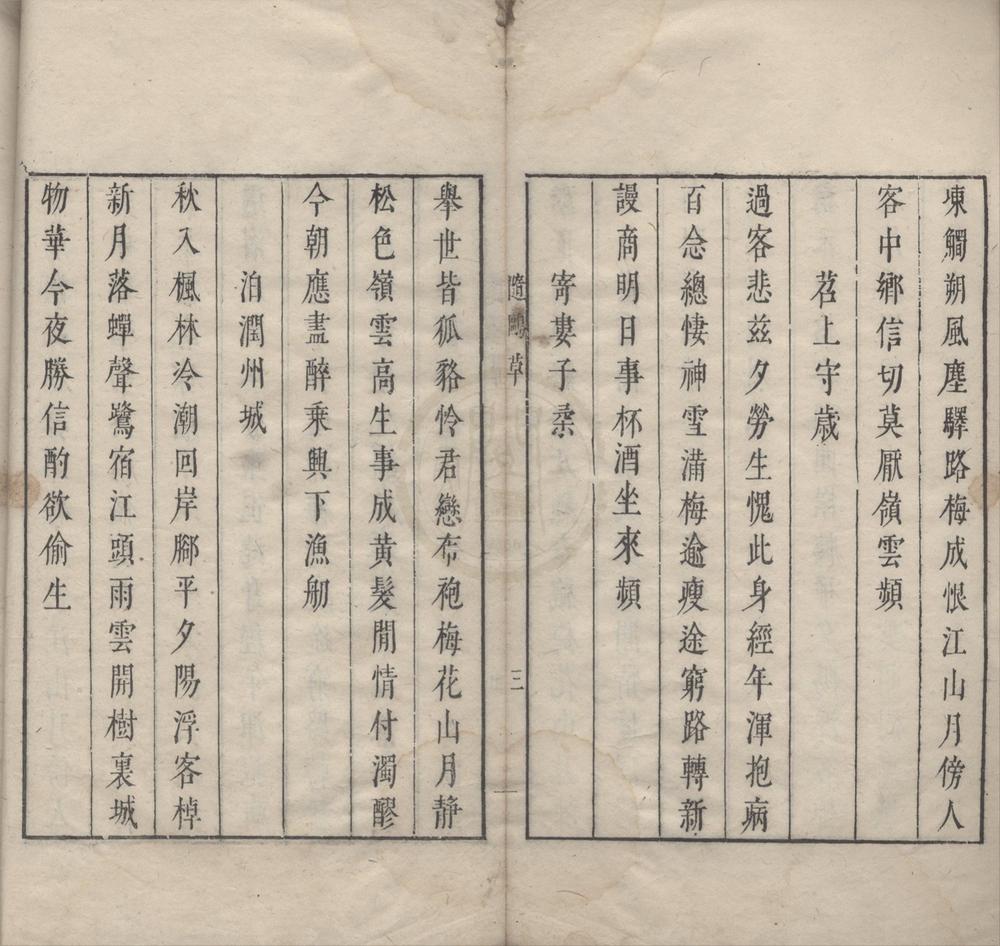 凍觸朔風塵驛路梅成恨江山月傍人
客中鄉信切莫厭嶺雲頻
苕上守歲
過客悲茲夕勞生愧此身經年渾抱病
百念總悽神雪滿梅逾瘦途窮路轉新
謾商明日事杯酒坐來頻
寄婁子柔
隨鷗草
三
舉世皆狐貉怜君戀布袍梅花山月靜
松色嶺雲高生事成黃髮閒情付濁醪
今朝應盡醉乘興下漁舠
泊潤州城
秋入楓林冷潮回岸腳平夕陽浮客棹
新月落蟬聲鷺宿江頭雨雲開樹裏城
物華今夜勝信酌欲偷生